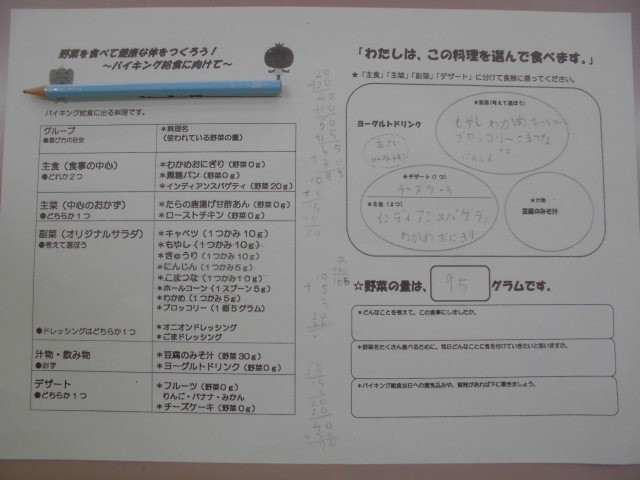 野菜を食べて健康な体をつくろう！
～バイキング給食に向けて～
バイキング給食に出る料理です。
グループ
●選び方の目安
＊料理名
（使われている野菜の量）
主食（食事の中心）
●どれか２つ
＊わかめおにぎり（野菜０ｇ）
＊黒糖パン（野菜０ｇ）
＊インディアンスパゲティ（野菜20ｇ）
主菜（中心のおかず）
●どちらか１つ
＊たらの唐揚げ甘酢あん（野菜０ｇ）
＊ローストチキン（野菜０ｇ）
副菜（オリジナルサラダ）
●考えて選ぼう
＊キャベツ（１つかみ 10ｇ）
＊もやし（１つかみ 10ｇ）
＊きゅうり（１つかみ 10ｇ）
＊にんじん（１つかみ５ｇ）
＊こまつな（１つかみ10ｇ）
＊ホールコーン（１スプーン５ｇ）
＊わかめ（１つかみ５ｇ）
＊ブロッコリー（１個５グラム）
●ドレッシングはどちらか１つ
＊オニオンドレッシング
＊ごまドレッシング
汁物・飲み物
●必ず
＊豆腐のみそ汁（野菜30ｇ）
＊ヨーグルトドリンク（野菜０ｇ）
デザート
●どちらか１つ
＊フルーツ（野菜０ｇ）
りんご・バナナ・みかん
＊チーズケーキ（野菜０ｇ）
「わたしは、この料理を選んで食べます。」
★「主食」「主菜」「副菜」「デザート」に分けて食器に盛ってください。
ヨーグルトドリンク
★副菜（考えて選ぼう）
もやし わかめ ホールコーン
ブロッコリー こまつな
にんじん
★デザート（１つ）
チーズケーキ
★主食（２つ）
インディアンスパゲティ
わかめおにぎり
★汁物
豆腐のみそ汁
☆野菜の量は、 95 グラムです。
＊どんなことを考えて、この食事にしましたか。
＊野菜をたくさん食べるために、毎日どんなことに気を付けていきたいと思いますか。
＊バイキング給食当日への意気込みや、質問があれば下に書きましょう。